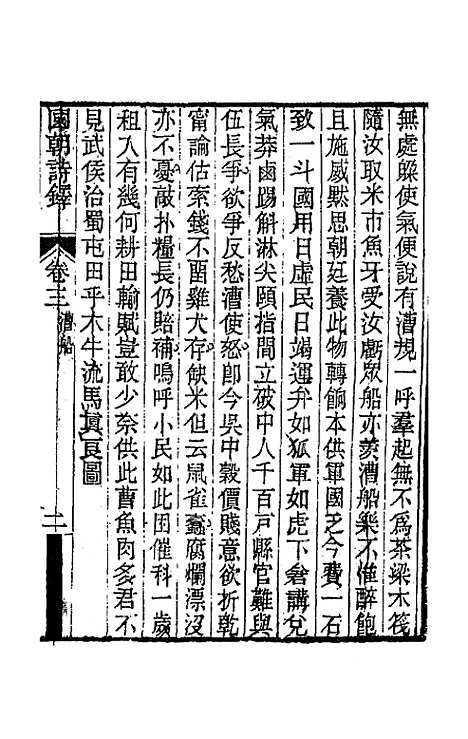 無處躲使氣便說有漕規一呼羣起無不爲茶梁木筏
隨汝取米市魚牙受汝虧眾船亦羨漕船樂不惟醉飽
且施威默思朝廷養此物轉餉本供軍國乏今費一石
致一斗國用日虛民日竭運弁如狐軍如虎下倉講兌
氣莽鹵踢斛淋尖頤指間立破中人千百戸縣官難與
伍長爭欲爭反愁漕使怒卽今吳中穀價賤意欲折乾
甯論估索錢不畱雞犬存缺米但云鼠雀蠧腐爛漂沒
亦不憂敲扑糧長仍賠補嗚呼小民如此困催科一歲
租入有幾何耕田輸賦豈敢少奈供此曹魚肉多君不
見武侯治蜀屯田乎木牛流馬眞良圖
國朝詩鐸
卷三
漕船
二